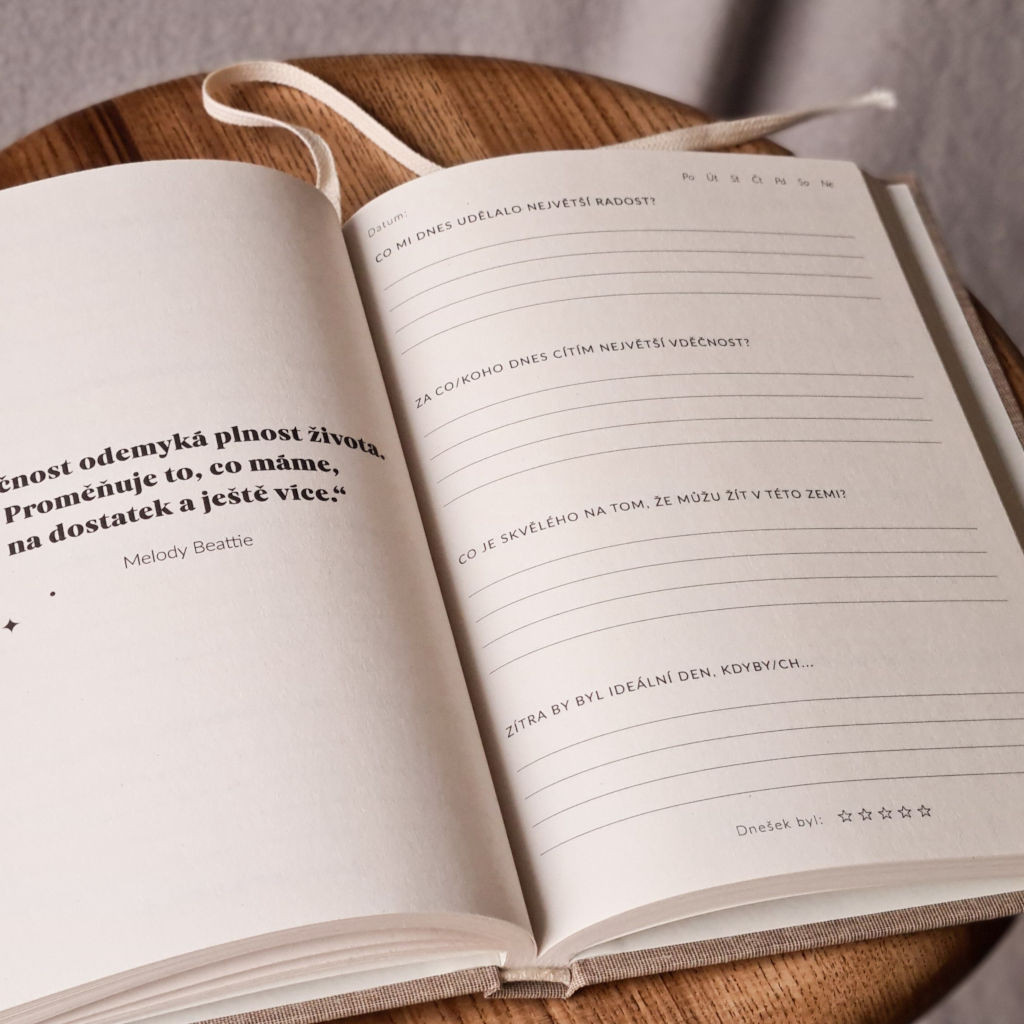 čnost odemyká plnost života.
Proměňuje to, co máme,
na dostatek a ještě více.“
Melody Beattie
Po Út St Čt Pá So Ne
Datum:
CO MI DNES UDĚLALO NEJVĚTŠÍ RADOST?
ZA CO/KOHO DNES CÍTÍM NEJVĚTŠÍ VDĚČNOST?
CO JE SKVĚLÉHO NA TOM, ŽE MŮŽU ŽÍT V TÉTO ZEMI?
ZÍTRA BY BYL IDEÁLNÍ DEN, KDYBY/CH...
Dnešek byl: